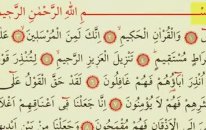 مِ اللَّهِ الرَّحْمَٰنِ الرَّحِيمِ
وَالْقُرْآنِ الْحَكِيمِ إِنَّكَ لَمِنَ الْمُرْسَلِينَ
مُسْتَقِيمٍ تَنْزِيلَ الْعَزِيزِ الرَّحِيمِ لِتُنْذِرَ قَوْ
أُنْذِرَ آبَاؤُهُمْ فَهُمْ غَافِلُونَ لَقَدْ حَقَّ الْقَوْلُ عَلَى
هِمْ فَهُمْ لَا يُؤْمِنُونَ إِنَّا جَعَلْنَا فِي أَعْنَاقِهِمْ أَغْلَالًا
الْأَذْقَانِ فَهُمْ مُقْمَحُونَ وَجَعَلْنَا مِنْ بَيْنِ